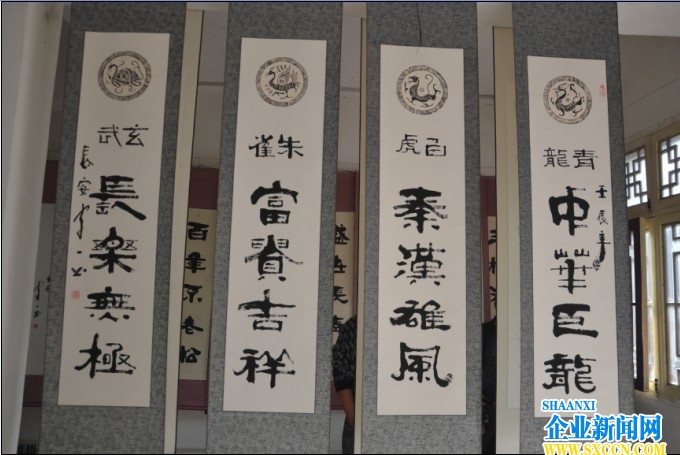 青龍
壬辰年
中華巨龍
白虎
秦漢雄風
朱雀
富貴吉祥
玄武
長樂無極
長安
百年不老松
SHAANXI
企业新闻网
WWW.SXCCN.COM